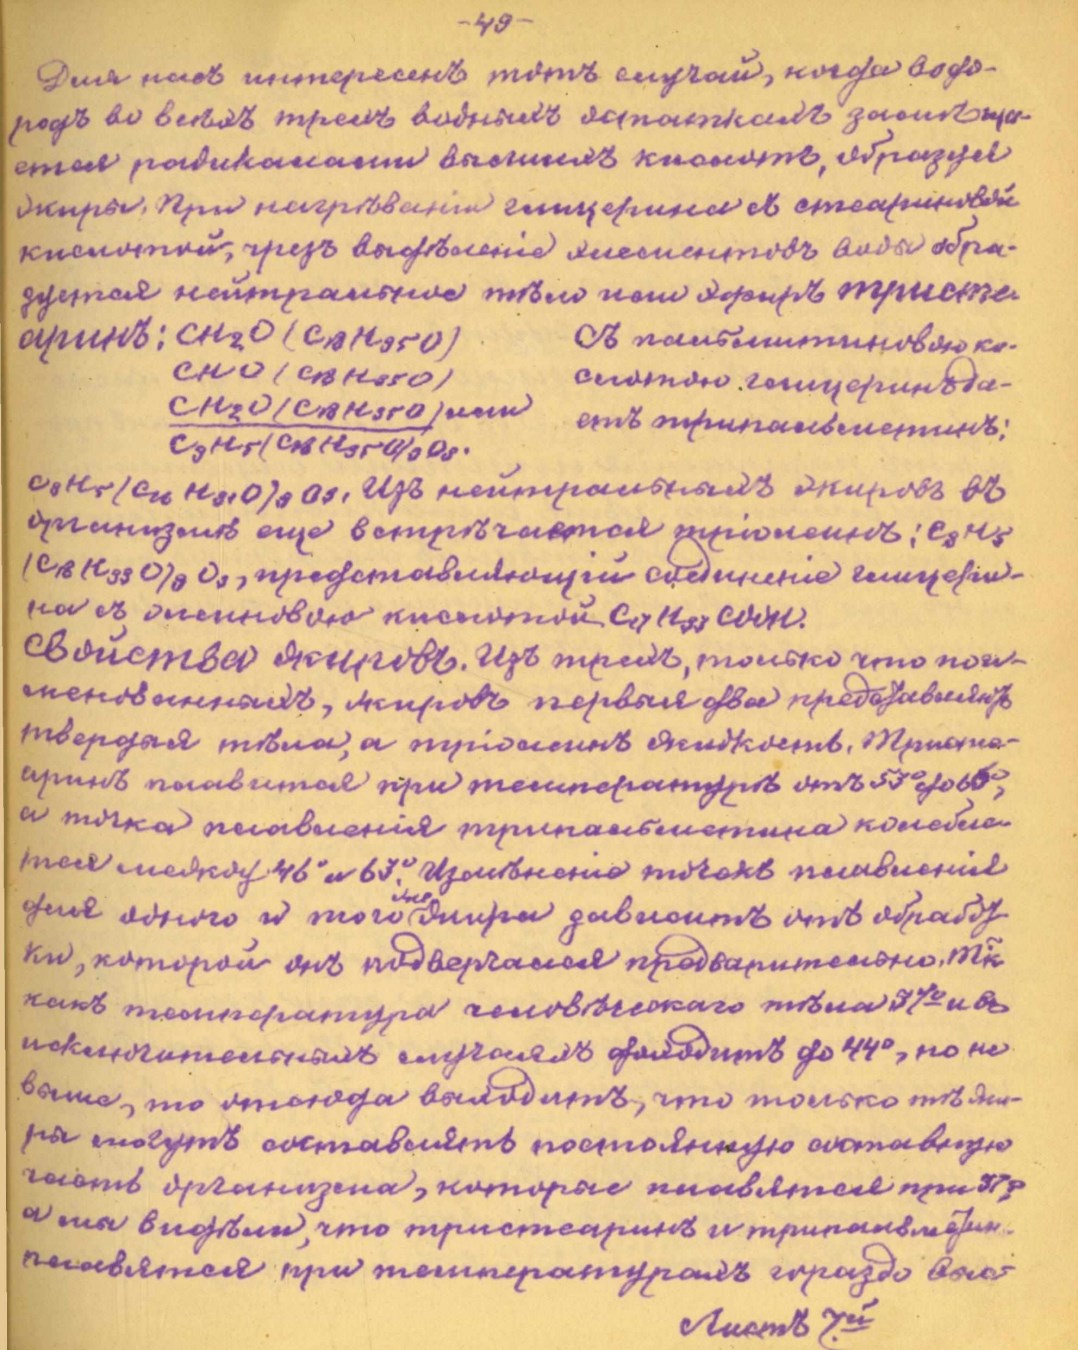 -49-
Для насъ интересенъ тотъ случай, когда водо-
родъ во всѣхъ трехъ водныхъ остаткахъ замѣща-
ется радикалами высшихъ кислотъ, образуя
жиры. При нагрѣваніи глицерина съ стеариновой
кислотой, чрезъ выдѣленіе элементовъ воды обра-
зуется нейтральное тѣло или эфиръ тристе-
аринъ: CH2O (C18H35O) Съ пальмитиновою ки-
CHO (C18H35O) слотою глицеринъ да-
CH2O (C18H35O) или етъ трипальметинъ:
C3H5 (C18H35O)3O3.
C3H5 (C16H31O)3O3. Изъ нейтральныхъ жировъ въ
организмѣ еще встрѣчается тріолеинъ: C3H5
(C18H33O)3O3, представляющій соединеніе глицери-
на съ олеиновою кислотой C17H33COOH.
Свойства жировъ. Изъ трехъ, только что поиме-
менованныхъ, жировъ первыя два представляютъ
твердыя тѣла, а тріолеинъ жидкость. Тристе-
аринъ плавится при температурѣ отъ 53° до 66°,
а точка плавленія трипальметина колебле-
тся между 46° и 63°. Измѣненіе точекъ плавленія
для одного и того же жира зависитъ отъ обработ-
ки, которой онъ подвергался предварительно. Такъ
какъ температура человѣческаго тѣла 37° и въ
исключительныхъ случаяхъ доходитъ до 44°, но не
выше, то отсюда выходитъ, что только тѣ жи-
ры могутъ составлять постоянную составную
часть организма, которые плавятся при 37°,
а мы видѣли, что тристеаринъ и трипальметин.
плавятся при температурахъ гораздо выс-
Листъ 7й